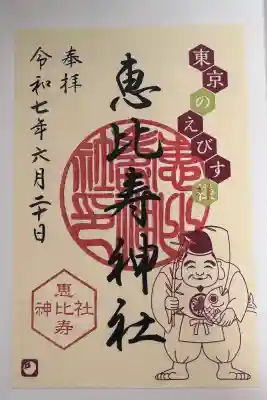 東京のえびす様
恵比寿神社
奉拝
令和七年六月二十日
恵
神比社
寿